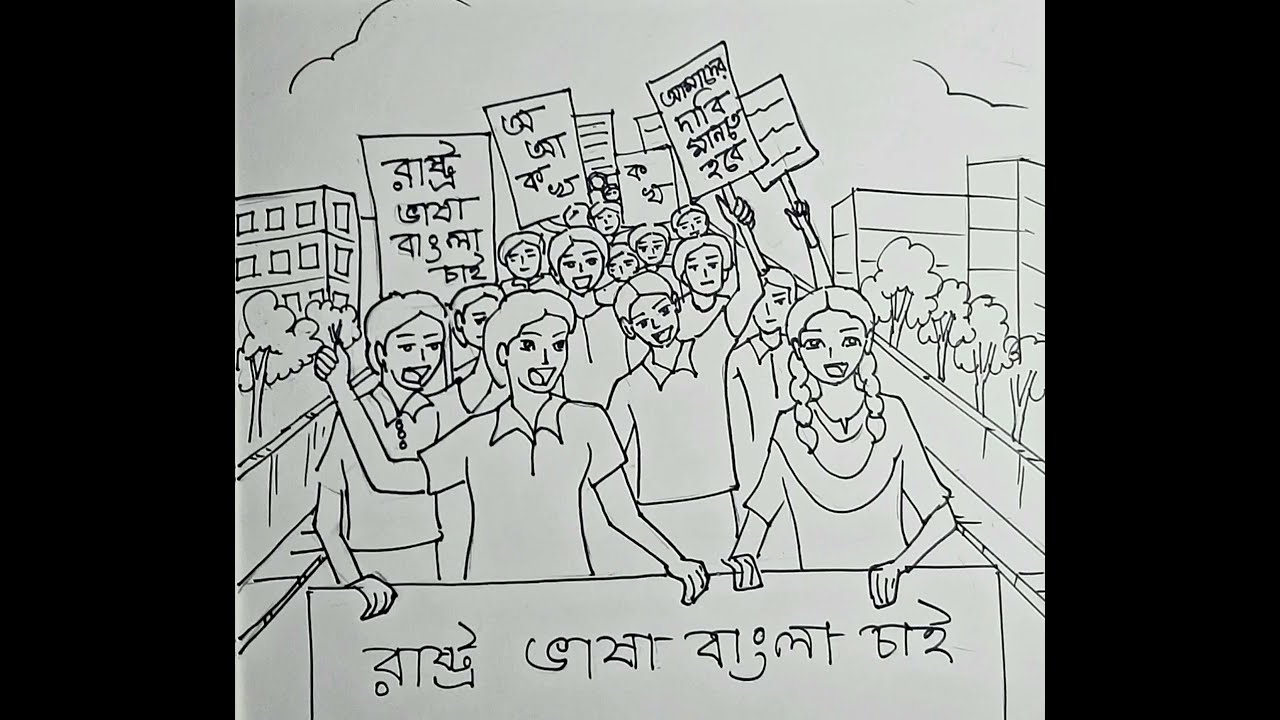 রাষ্ট্র
ভাষা
বাংলা
চাই
অ
আ
ক খ
ক
খ
আমাদের
দাবি
মানতে
হবে
রাষ্ট্র ভাষা বাংলা চাই